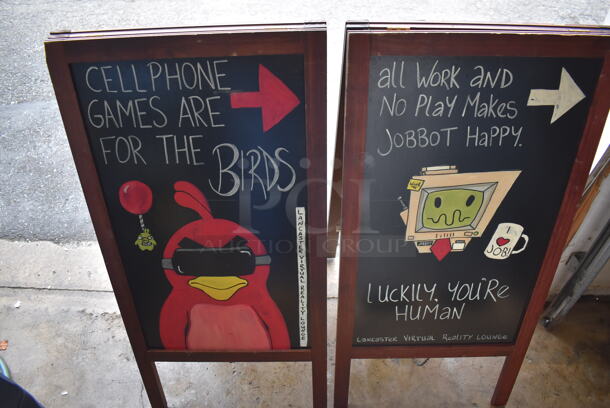 CELLPHONE
GAMES ARE
FOR THE BIRDS
LANCASTER VIRTUAL REALITY LOUNGE
all WORK AND
NO PLAY MAKES
JOBBOT HAPPY.
I ♥
JOB!
LUCKILY, YOU'RE
HUMAN
LANCASTER VIRTUAL REALITY LOUNGE
PCI
AUCTION GROUP